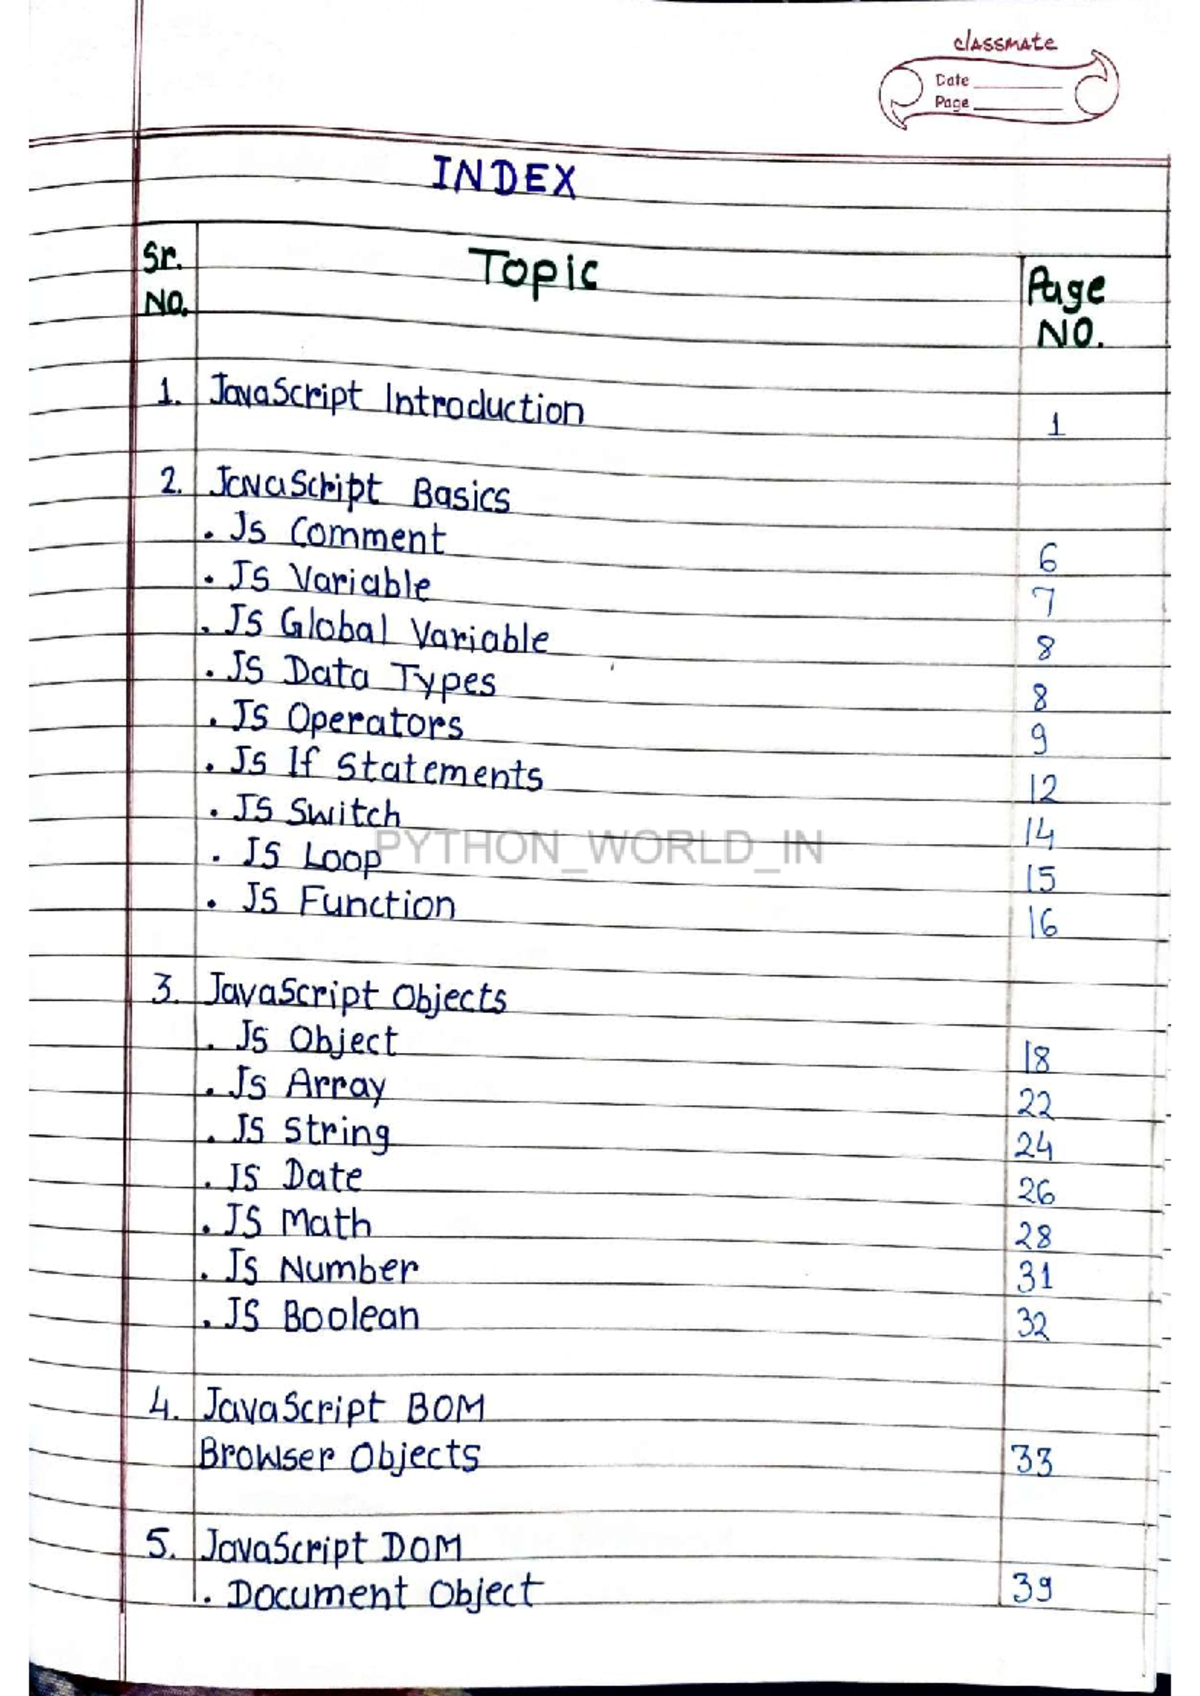 classmate
Date
Page
INDEX
Sr. No. Topic Page No.
1. JavaScript Introduction 1
2. JavaScript Basics
. Js Comment 6
. Js Variable 7
. JS Global Variable 8
. JS Data Types 8
. JS Operators 9
. Js If Statements 12
. JS Switch 14
PYTHON_WORLD_IN
. JS Loop 15
. JS Function 16
3. JavaScript Objects
. Js Object 18
. Js Array 22
. JS String 24
. JS Date 26
. JS Math 28
. Js Number 31
. JS Boolean 32
4. JavaScript BOM
Browser Objects 33
5. JavaScript DOM
. Document Object 39